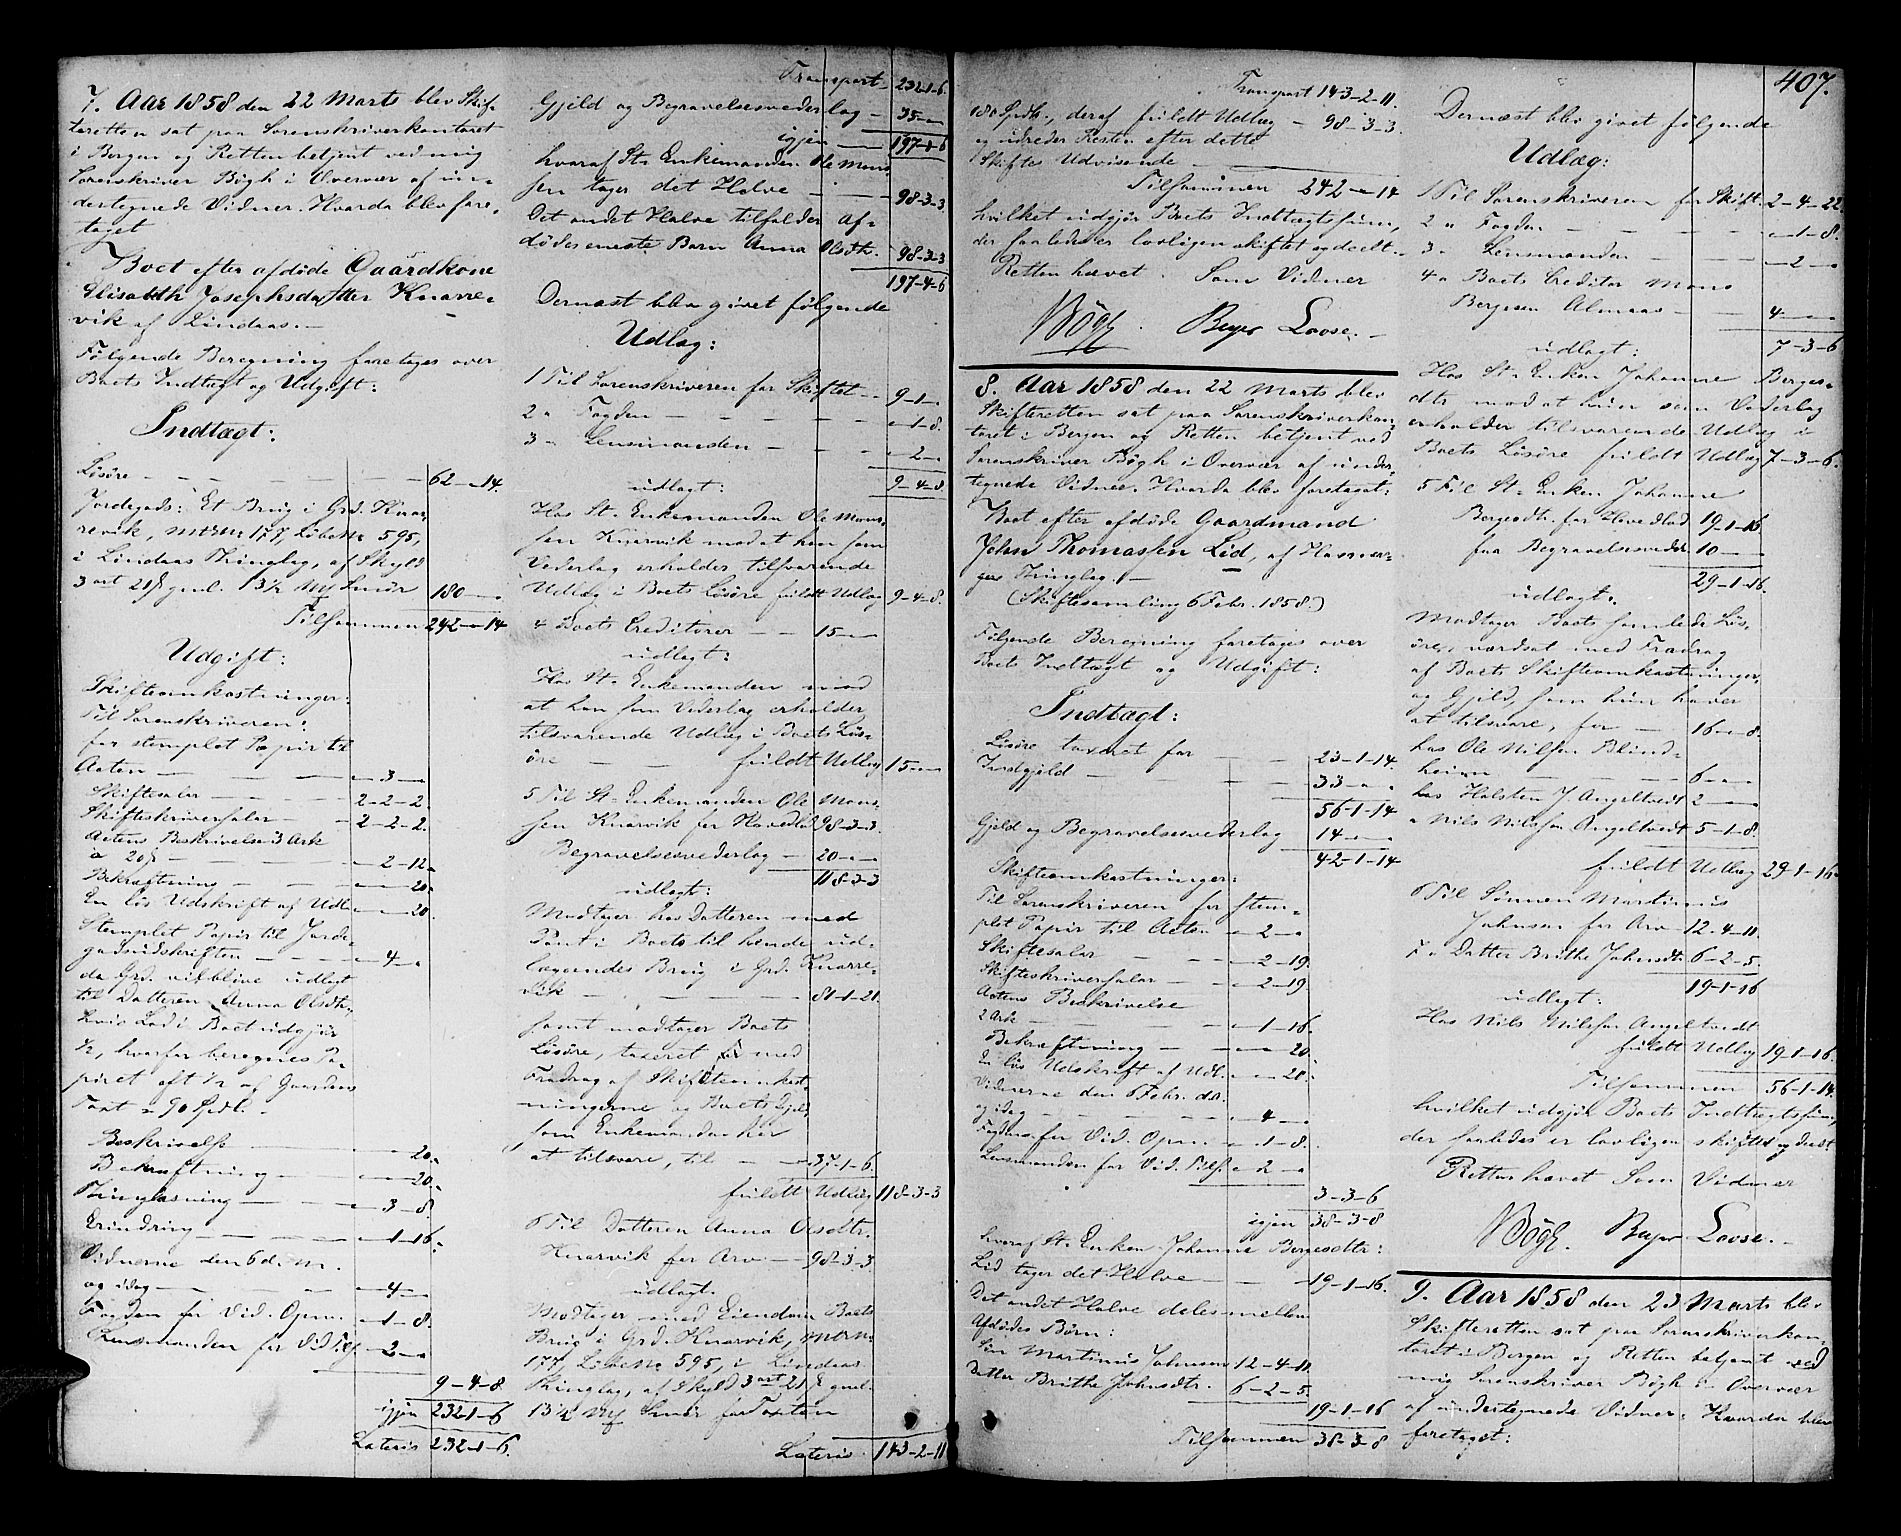 7. Aar 1858 den 22 Marts blev Skif-
teretten sat paa Sorenskriverkontoret
i Bergen og Retten betjent ved mig
Sorenskriver Bøgh i Overvær af un-
dertegnede Vidner. Hvorda blev fore-
taget
Boet efter afdøde Gaardkone
Elisabeth Josephsdatter Knarre-
vik af Lindaas.-
Følgende Beregning foretages over
Boets Indtægt og Udgift:
Indtægt:
Løsøre - - - - 62 - 14.
Jordegods: Et Brug i Grd. Knar-
revik, Mtr No 177, Løbe No 595,
i Lindaas Thinglag, af Skyld
3 ort 21 ß gml. 13½ Mrk Smør 180 - -
Tilsammen 242 - 14
Udgift:
Skifteomkostninger:
Til Sorenskriveren:
for stemplet Papir til
Acten - - - - - 3 -
Skiftesalær - - - 2-2-2.
Skifteskriversalær - - 2-2-2.
Actens Beskrivelse 3 Ark
à 20 ß - - - 2-12.
Bekræftning - - - 20.
En løs Udskrift af Udl. - - 20.
Stemplet Papir til Jorde-
godsudskriften - - - 4 -
da Grd. vil blive udlagt
til Datteren Anna Olsdtr.
hvis Lod i Boet udgjør
½, hvorfor beregnes Pa-
piret eft ½ af Gaardens
Taxt = 90 Spdl. -
Beskrivelse - - 20.
Bekræftning - - 20.
Thinglæsning - - 3-8.
Erindring - - 1-16.
Vidnerne den 6 d. M.
og idag - - - 4 -
Fogden for Vid. Opn. - 1-8.
Lensmanden for Vid. Tilf. - 2 -
9-4-8.
igjen 232-1-6
Lateris 232-1-6.
Transport 232-1-6.
Gjeld og Begravelsesvederlag - 35 - -
igjen 197-1-6
hvoraf St= Enkemanden Ole Mons-
sen tager det Halve - - 98-3-3.
Det andet Halve tilfalder af-
dødes eneste Barn Anna Olsdtr. 98-3-3
197-4-6
Dernæst blev givet følgende
Udlæg:
1 Til Sorenskriveren for Skiftet - 9-1-
2 " Fogden - - - - 1-8.
3 " Lensmanden - - - 2 -
udlagt: 9-4-8.
Hos St= Enkemanden Ole Mons-
sen Knarvik mod at han som
Vederlag erholder tilsvarende
Udlæg i Boets Løsøre fuldt Udlæg 9-4-8.
4 Boets Creditorer - - 15 - -
udlagt:
Hos St= Enkemanden mod
at han som Vederlag erholder
tilsvarende Udlæg i Boets Løs-
øre - - fuldt Udlæg 15 - -
5 Til St= Enkemanden Ole Mons-
sen Knarvik for Hovedlod 98-3-3.
Begravelsesvederlag - 20 - -
udlagt: 118-3-3
Modtager hos Datteren med
Pant i Boets til hende ud-
læggendes Brug i Grd. Knarre-
vik - - - - 81-1-21.
samt modtager Boets
Løsøre, taxeret for med
Fradrag af Skifteomkost-
ningerne og Boets Gjeld,
som Enkemanden har
at tilsvare, til - - 37-1-6.
fuldt Udlæg 118-3-3
6 Til Datteren Anna Olsdtr.
Knarvik for Arv - 98-3-3.
udlagt.
Modtager med Eiendom Boets
Brug i Grd. Knarvik, Mtr No
177, Løbe No 595, i Lindaas
Thinglag, af Skyld 3 ort 21 ß gml.
13½ Mrk Smør for Taxten
Lateris 143-2-11
407.
Transport 143-2-11.
180 Spdlr., deraf fuldt Udlæg - 98-3-3.
og udreder Resten efter dette
Skiftes Udvisende -
Tilsammen 242 - 14
hvilket udgjør Boets Indtægtssum,
der saaledes er lovligen skiftet og deelt.
Retten hævet. Som Vidner
Bøgh. Beyer Loose. -
8. Aar 1858 den 22 Marts blev
Skifteretten sat paa Sorenskriverkon-
toret i Bergen og Retten betjent ved
Sorenskriver Bøgh i Overvær af under-
tegnede Vidner. Hvorda blev foretaget:
Boet efter afdøde Gaardmand
John Thomassen Lid, af Hammer-
gres Thinglag. -
(Skiftesamling 6 Febr. 1858.)
Følgende Beregning foretages over
Boets Indtægt og Udgift:
Indtægt:
Løsøre taxeret for - - 23-1-14.
Indgjeld - - - 33 - -
56-1-14
Gjeld og Begravelsesvederlag 14 - -
42-1-14
Skifteomkostninger:
Til Sorenskriveren for stem-
plet Papir til Acten - 2 -
Skiftesalær - - - 2-19.
Skifteskriversalær - - 2-19
Actens Beskrivelse
2 Ark - - - - 1-16.
Bekræftning - - - 20.
En løs Udskrift af Udl. - - 20.
Vidnerne den 6 Febr. d.a.
og idag - - - 4 -
Fogden for Vid. Opn. - 1-8.
Lensmanden for Vid. Tilf. - 2 -
3-3-6
igjen 38-3-8
hvoraf St= Enken Johanne Bergesdtr:
Lid tager det Halve - - 19-1-16.
Det andet Halve deles mellem
Afdødes Børn:
Søn Martinus Johnsen 12-4-11.
Datter Brithe Johnsdtr. 6-2-5.
19-1-16
Tilsammen 38-3-8
Dernæst blev givet følgende
Udlæg:
1 Til Sorenskriveren for Skift. 2-4-22.
2 " Fogden - - - - 1-8.
3 " Lensmanden - - - 2 -
4 " Boets Creditor Mons
Bergesen Almaas - - 4 - -
udlagt: 7-3-6
Hos St= Enken Johanne Berges-
dtr mod at hun som Vederlag
erholder tilsvarende Udlæg i
Boets Løsøre fuldt Udlæg 7-3-6.
5 Til St= Enken Johanne
Bergesdtr. for Hovedlod 19-1-16
for Begravelsesvedrl. 10 - -
29-1-16.
udlagt.
Modtager Boets samlede Løs-
øre, værdsat med Fradrag
af Boets Skifteomkostninger
og Gjeld, som hun haver
at tilsvare, for - 16 - 8.
hos Ole Nilsen Blind-
heim - - - 6 - -
hos Halsten J. Angeltvedt 2 - -
" Nils Nilssen Angeltvedt 5-1-8.
fuldt Udlæg 29-1-16.
6 Til Sønnen Martinus
Johnsen for Arv - 12-4-11.
7 " Datter Brithe Johnsdtr. 6-2-5.
udlagt: 19-1-16
Hos Nils Nilssen Angeltvedt
fuldt Udlæg 19-1-16.
Tilsammen 56-1-14.
hvilket udgjør Boets Indtægtssum,
der saaledes er lovligen skiftet og deelt.
Retten hævet Som Vidner
Bøgh. Beyer Loose. -
9. Aar 1858 den 23 Marts blev
Skifteretten sat paa Sorenskriverkon-
toret i Bergen og Retten betjent ved
mig Sorenskriver Bøgh i Overvær
af undertegnede Vidner. Hvorda blev
foretaget: